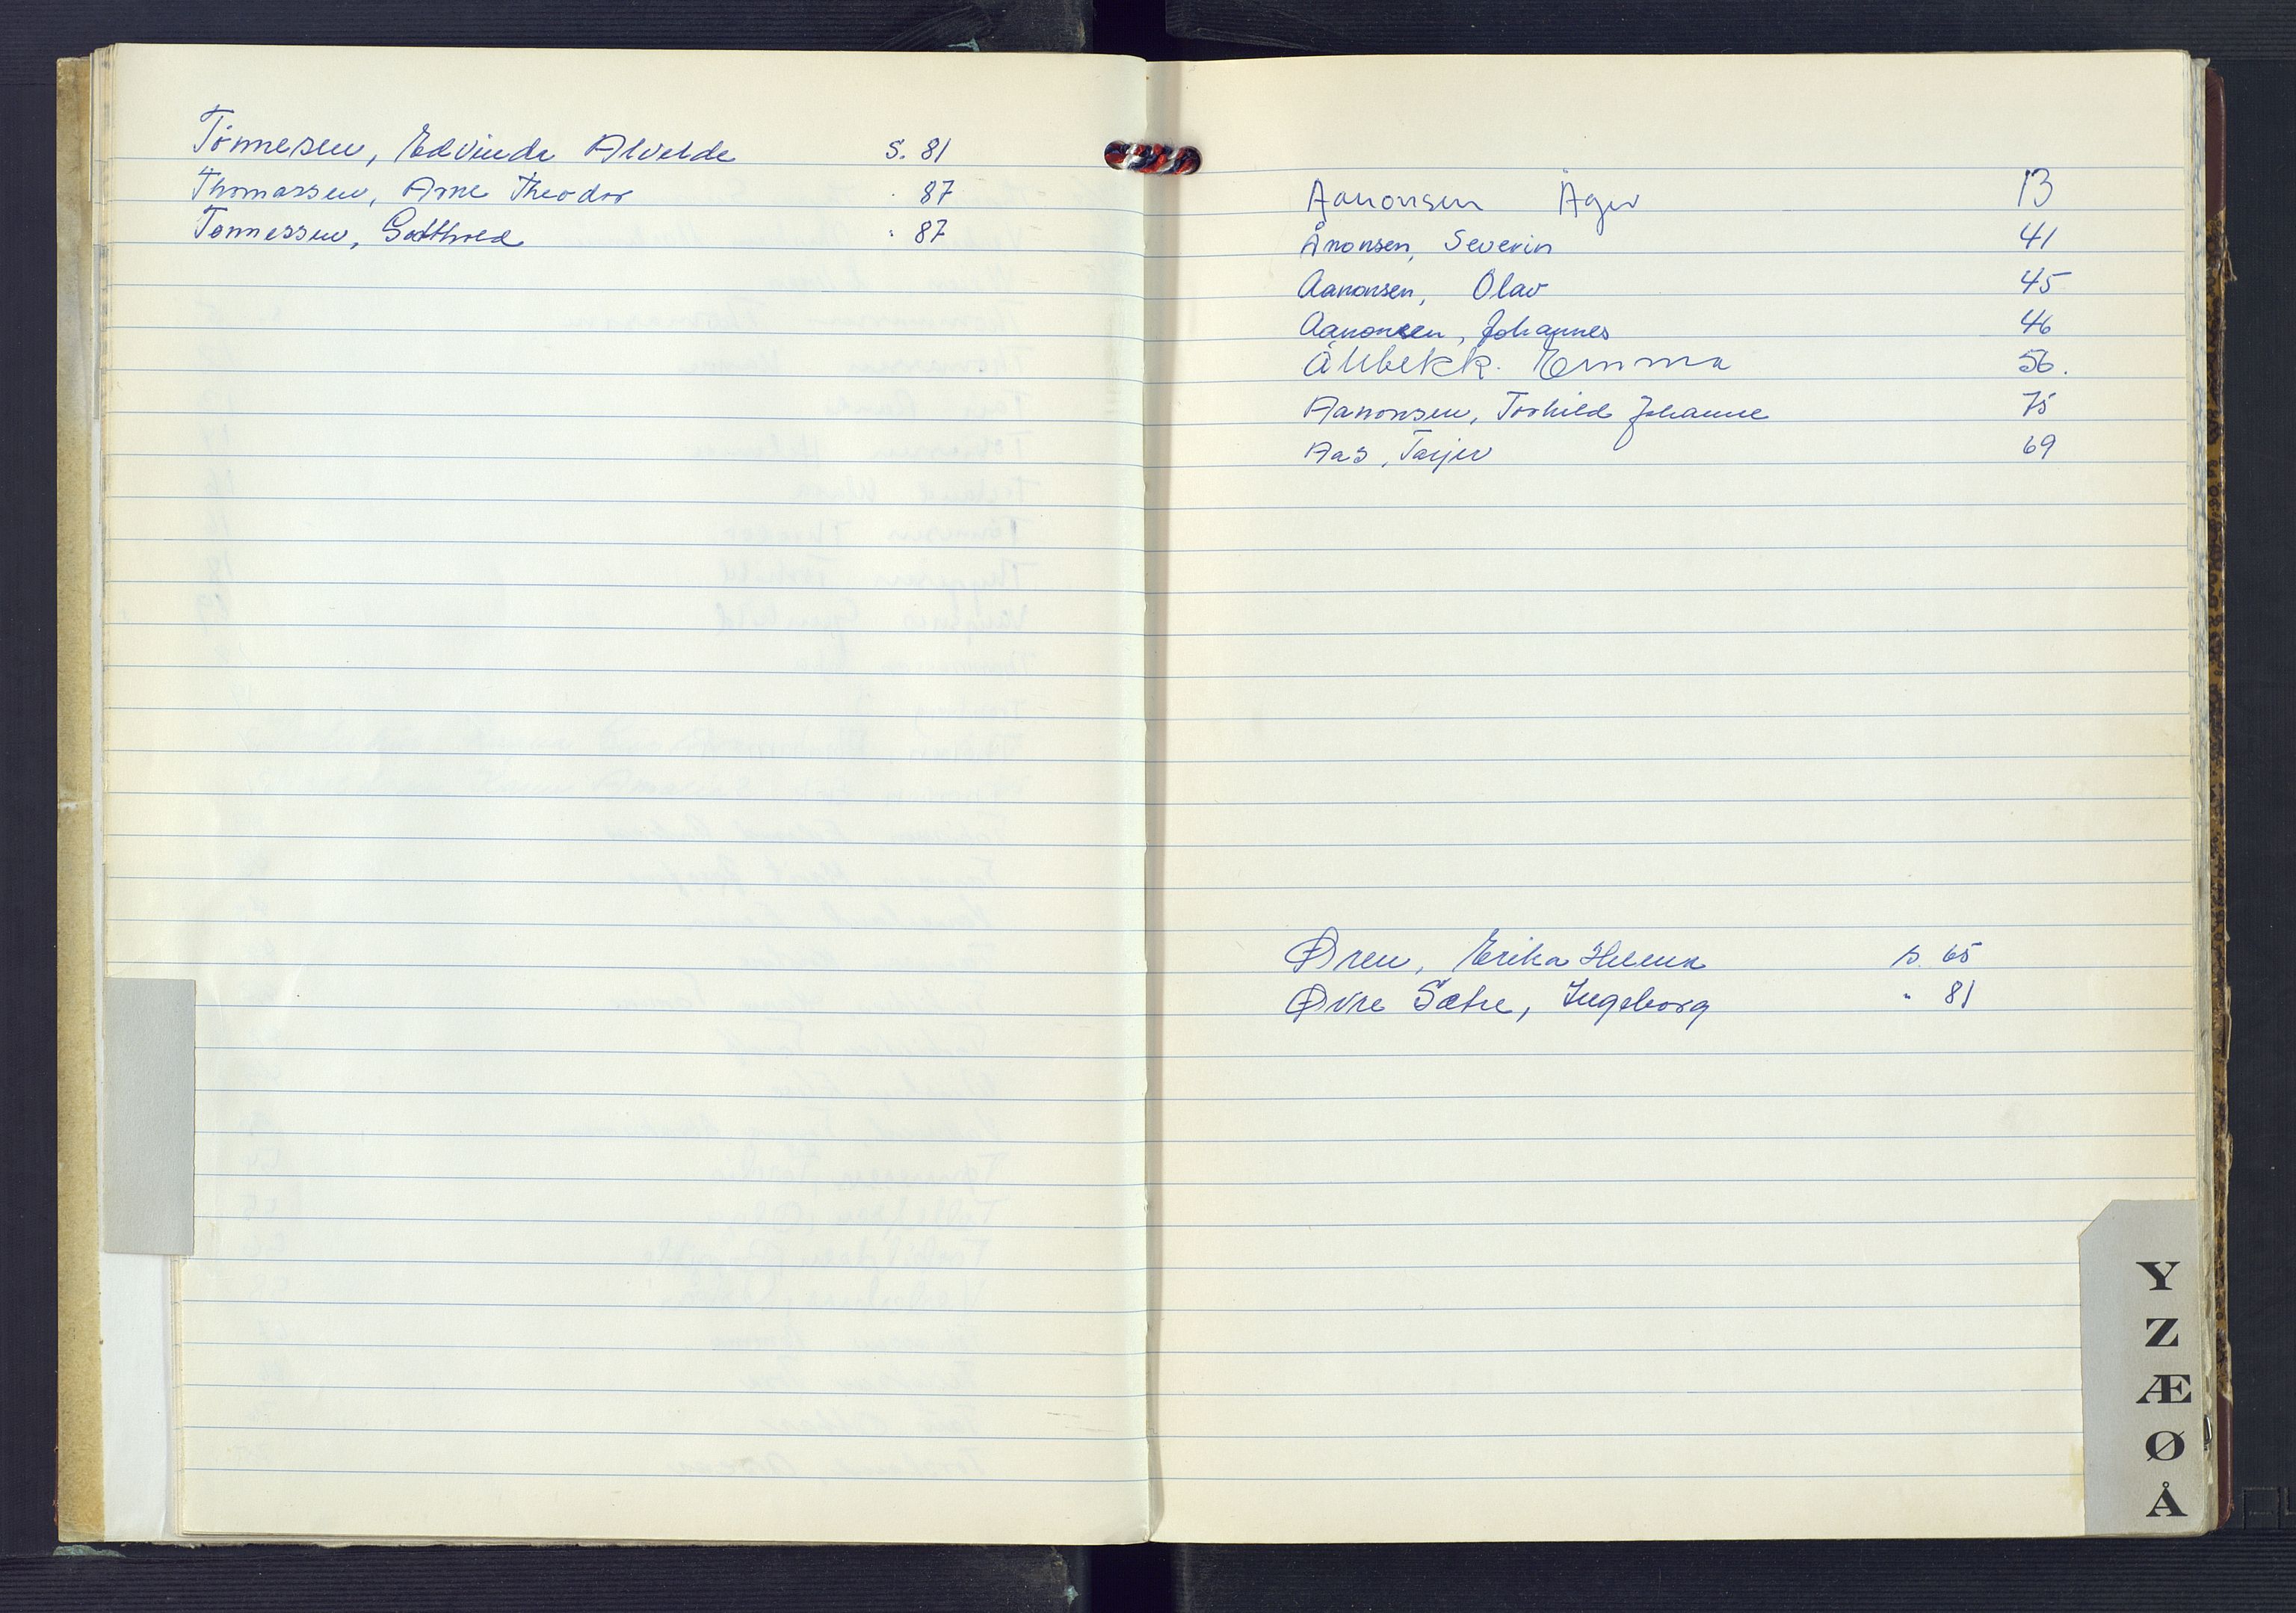 Tönnesen, Edvinde Alvelde s. 81
Thomassen, Arne Theodor " 87
Tønnessen, Gotthred " 87
Aanonsen Ågw 13
Ånonsen, Severin 41
Aanonsen, Olav 45
Aanonsen, Johannes 46
Ållbekk. Emma 56.
Aanonsen, Torhild Johanne 75
Aas, Tarjei 69
Øren, Erika Helena s. 65
Øvre Sætre, Ingeborg " 81
Y
Z
Æ
Ø
Å